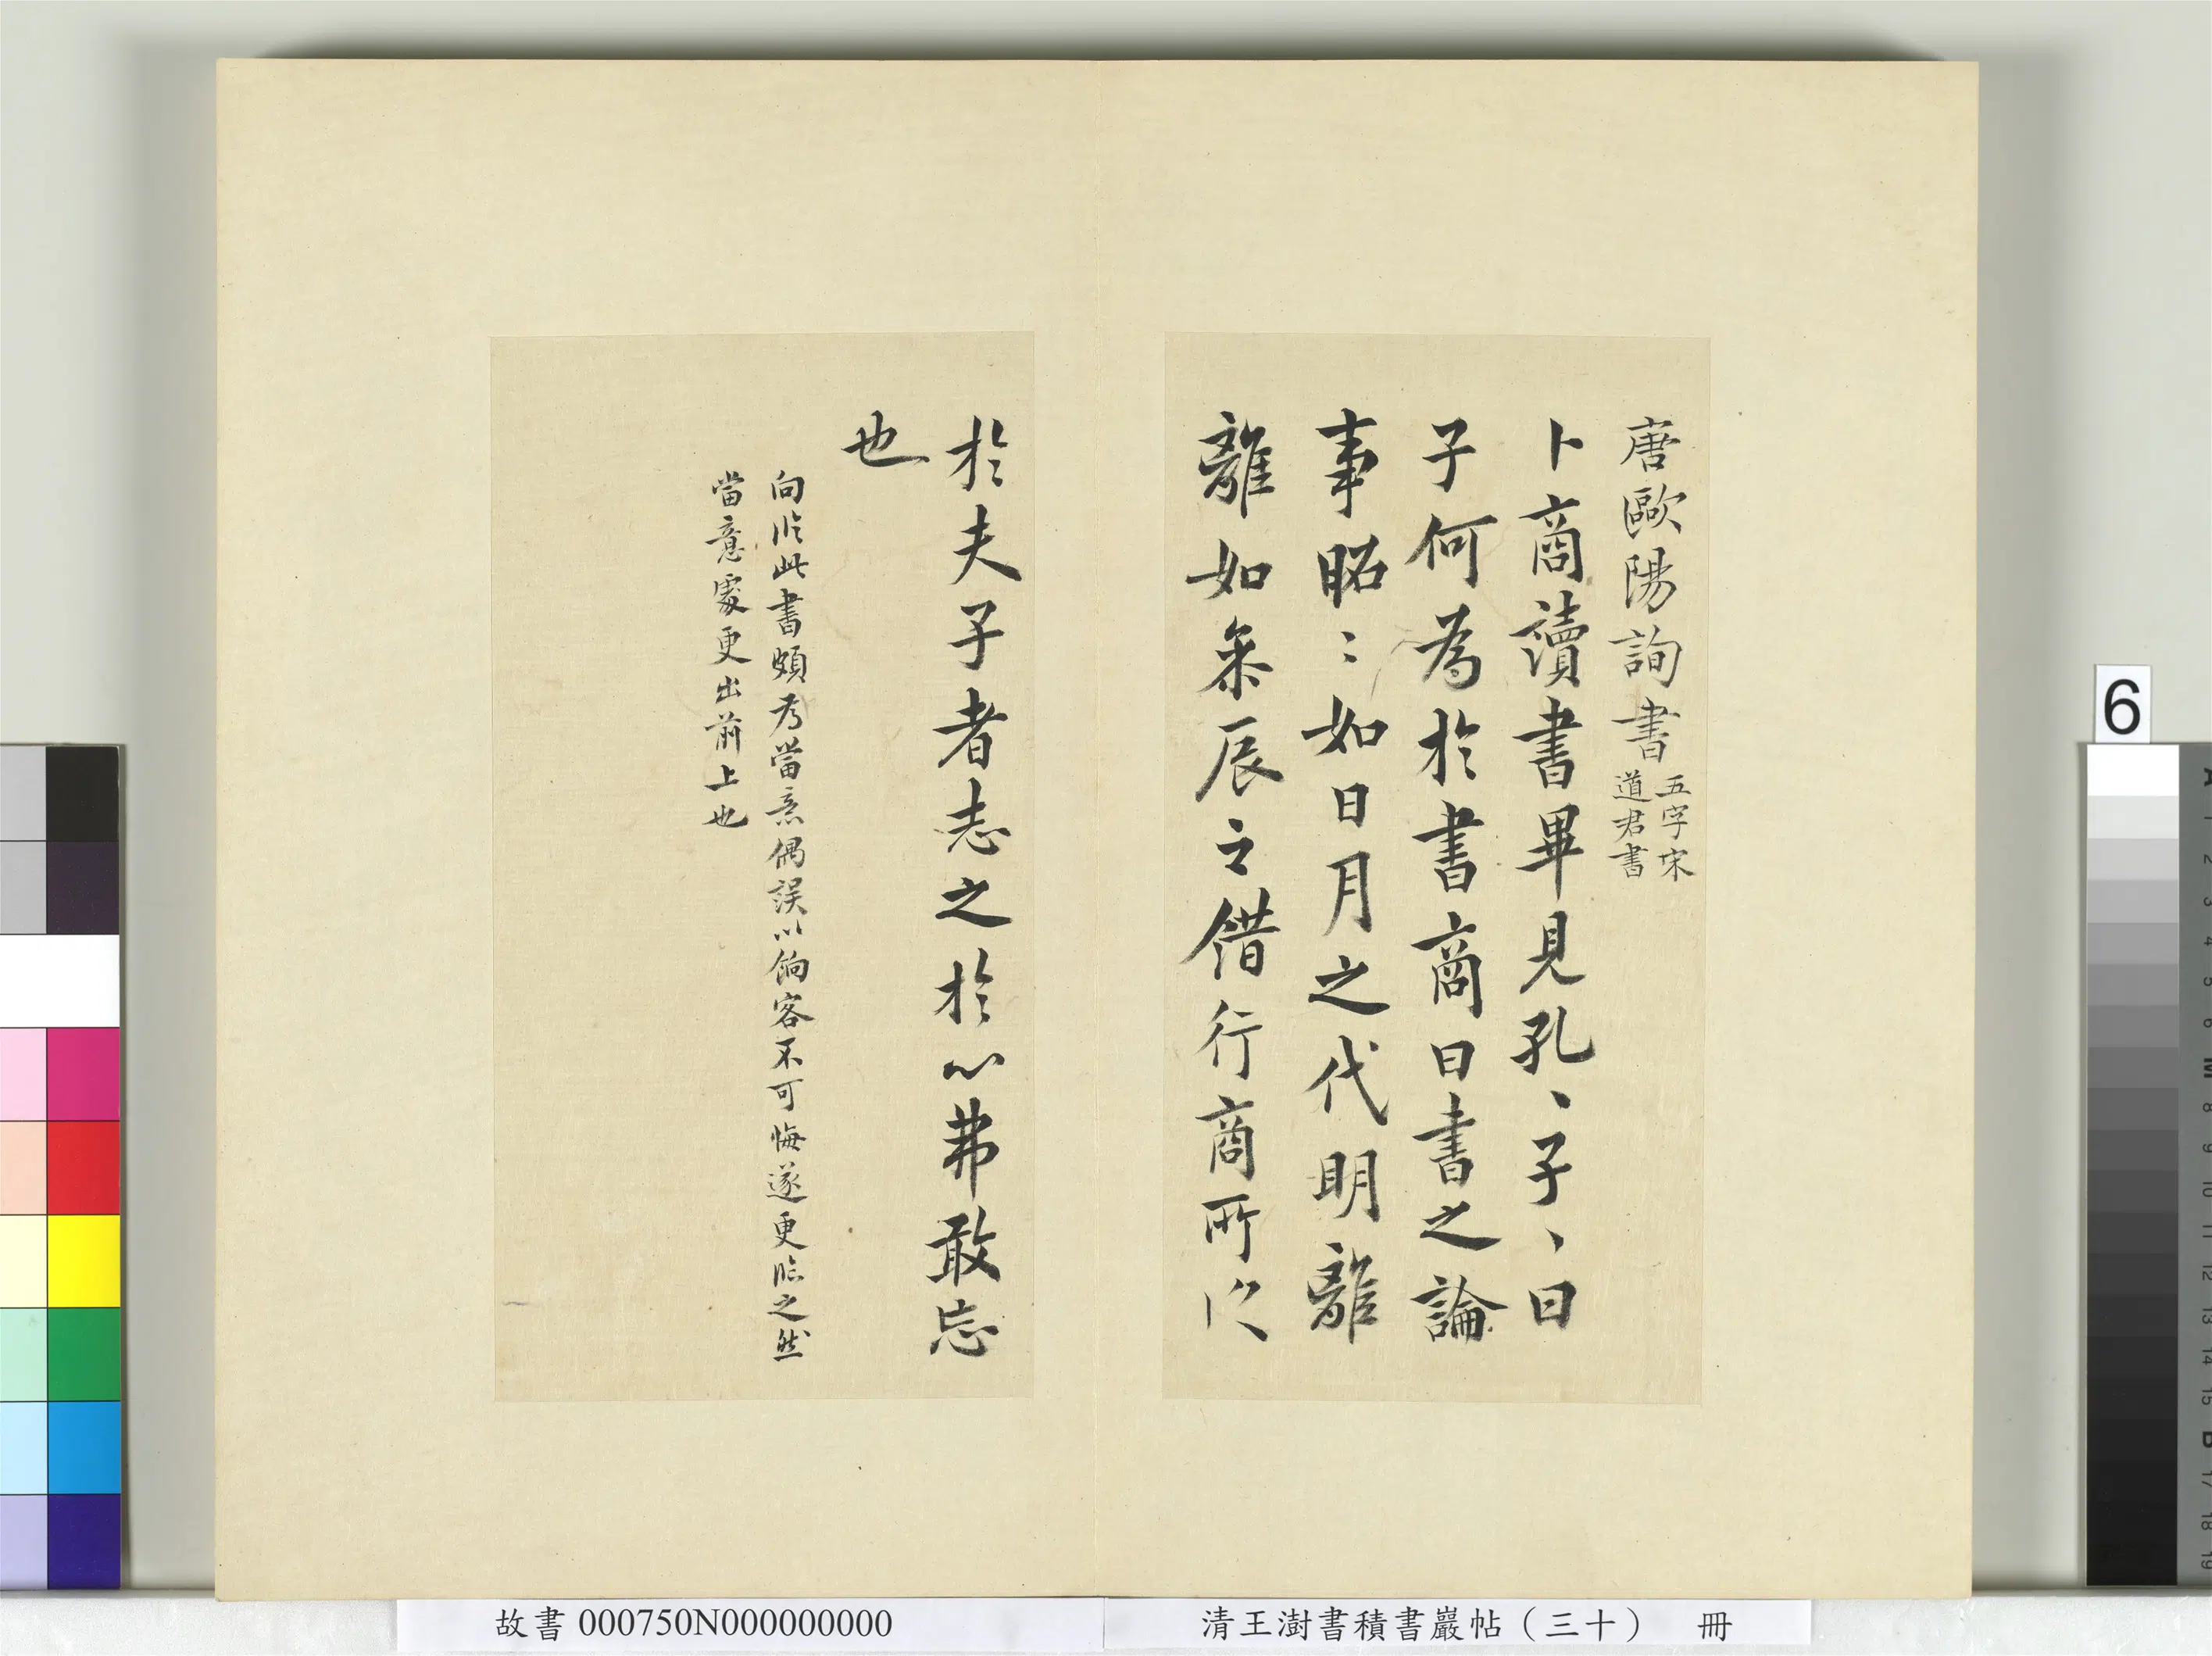 唐歐陽詢書 五字宋
道君書
卜商讀書畢見孔、子、曰
子何為於書商曰書之論
事昭〻如日月之代明離
離如參辰之錯行商所以
於夫子者志之於心弗敢忘
也
向臨此書頗為當意偶誤以餉客不可悔遂更臨之然
當意處更出前上也
6
故書 000750N000000000
清王澍書積書巖帖（三十） 冊